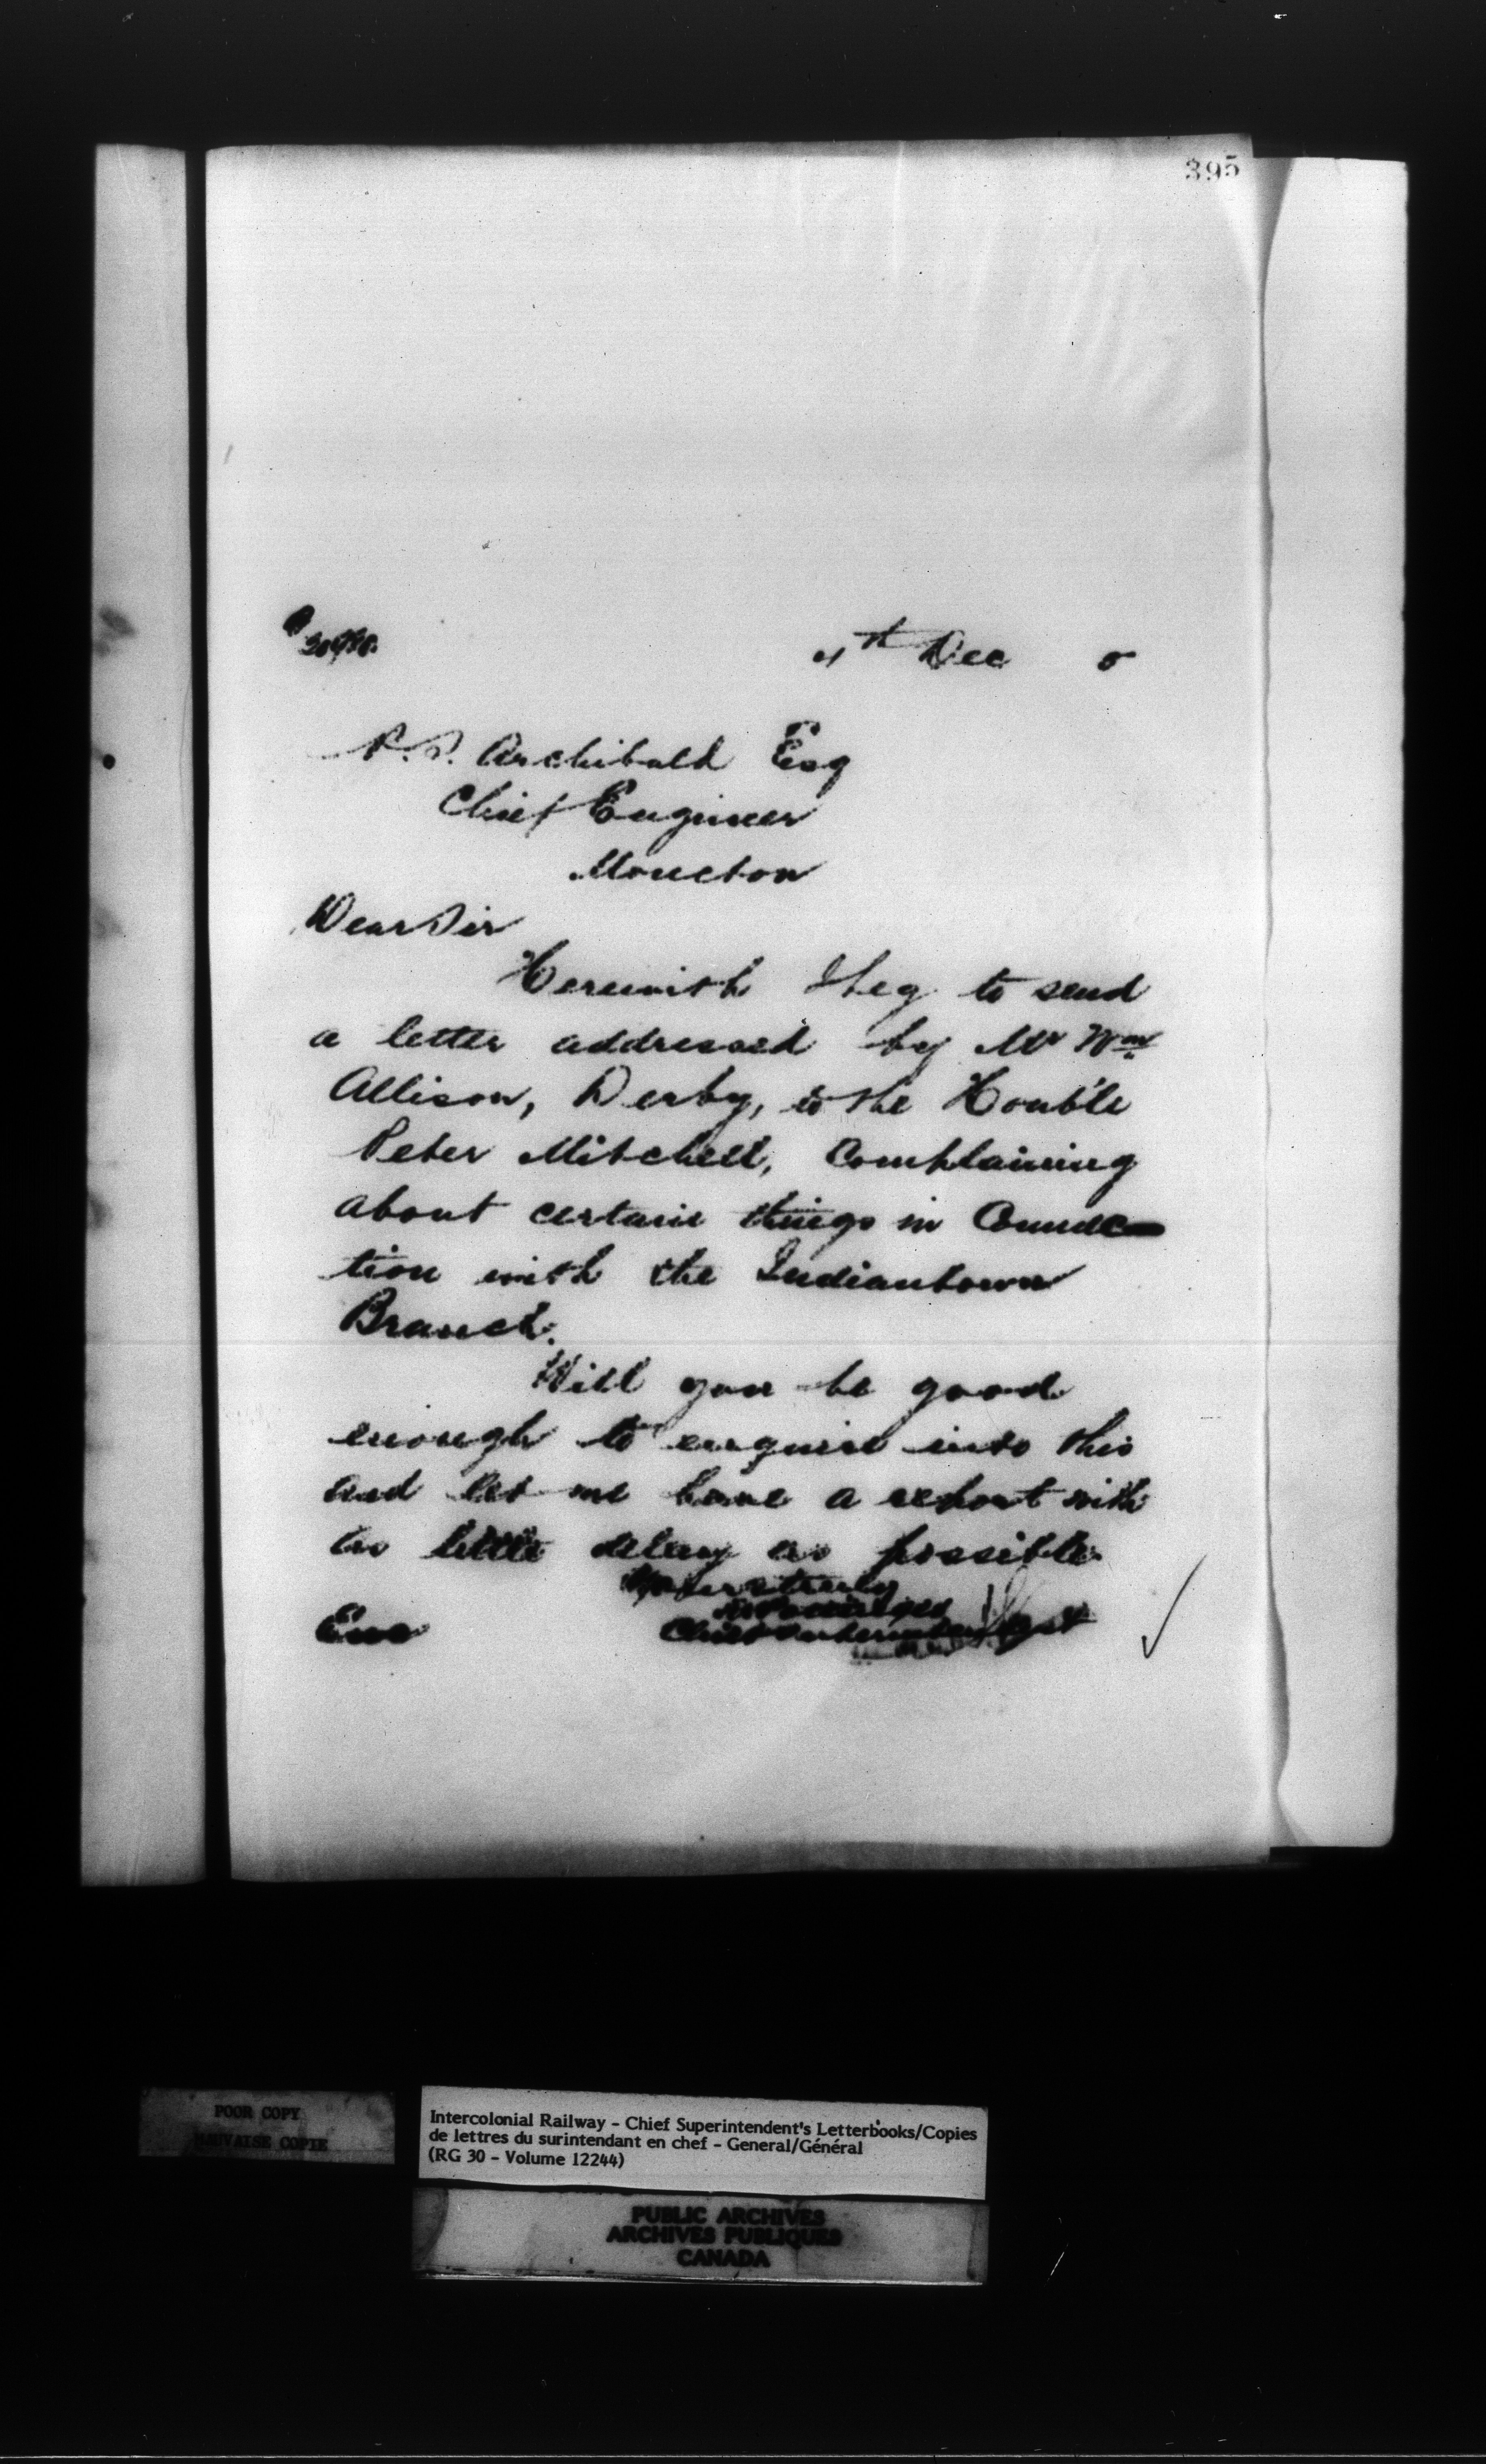 395
4th Dec
P.S. Archibald Esq
Chief Engineer
Moncton
Dear Sir
Herewith I beg to send
a letter addressed by Mr Wm
Allison, Derby, to the Honble
Peter Mitchell, Complaining
about certain things in Connec-
tion with the Indiantown
Branch.
Will you be good
enough to enquire into this
and let me have a report with
as little delay as possible
Yours truly
Chief Superintendent
Enc
POOR COPY
MAUVAISE COPIE
Intercolonial Railway - Chief Superintendent's Letterbooks/Copies
de lettres du surintendant en chef - General/Général
(RG 30 - Volume 12244)
PUBLIC ARCHIVES
ARCHIVES PUBLIQUES
CANADA